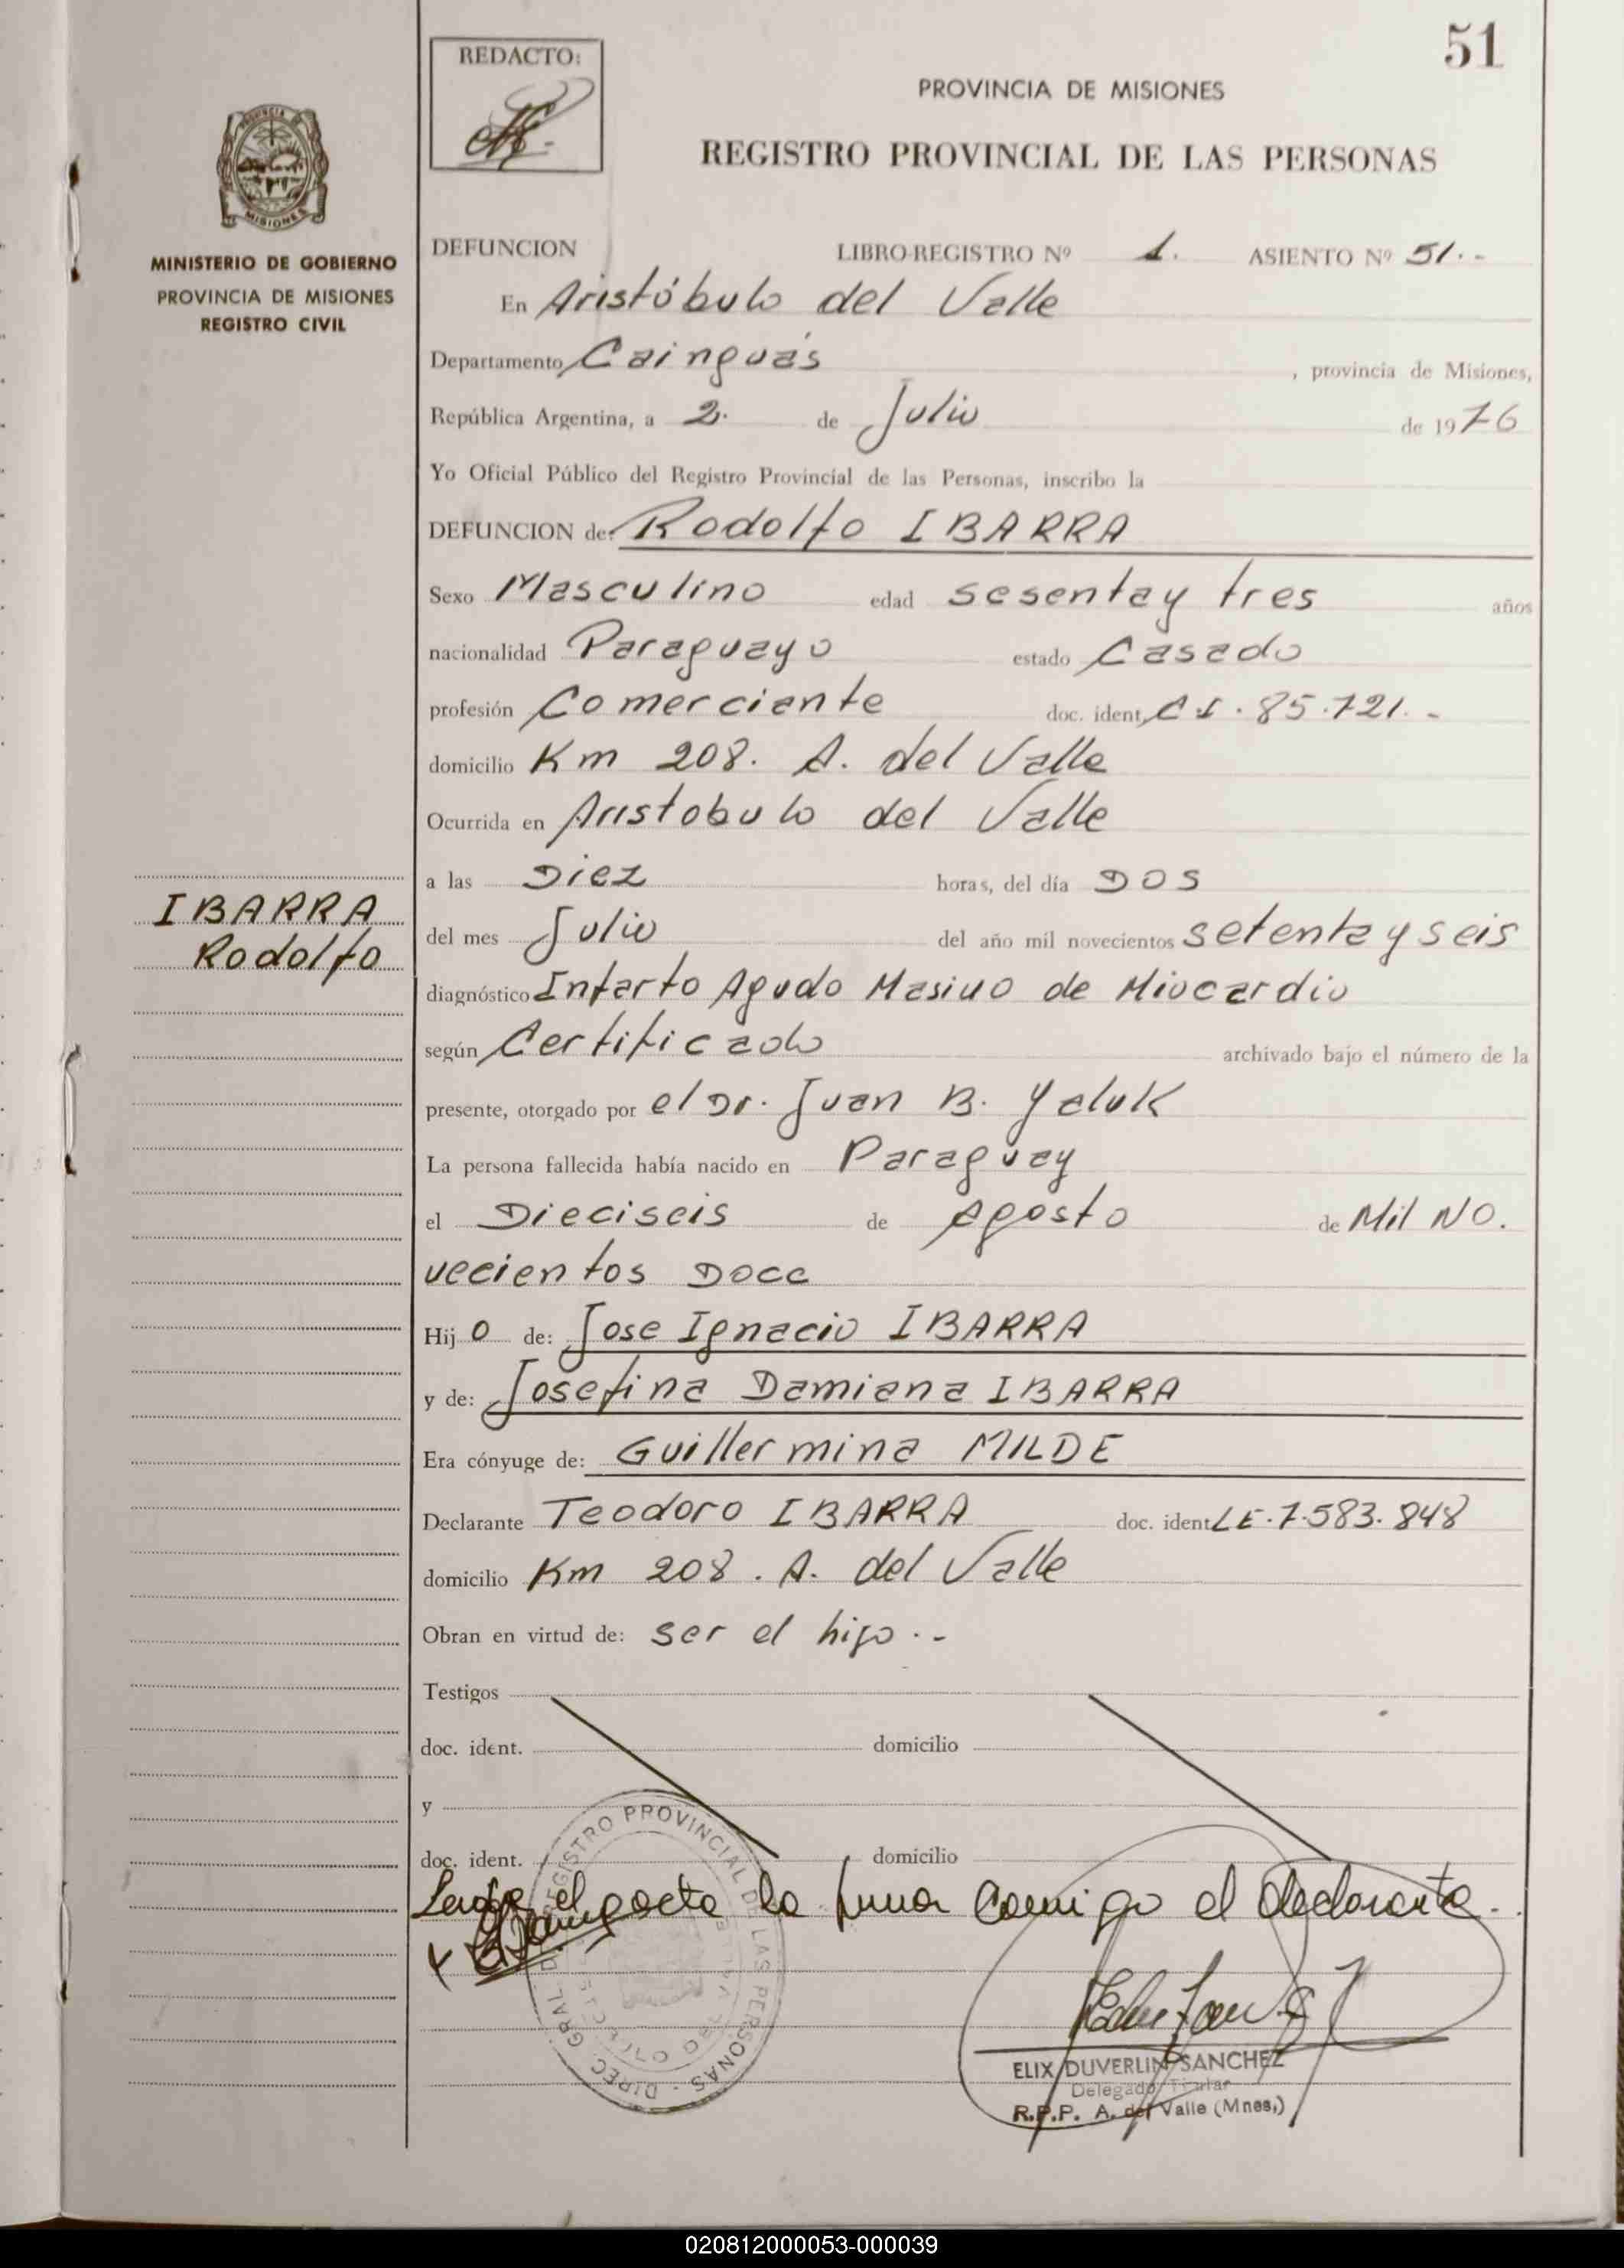 51
REDACTO:
PROVINCIA DE MISIONES
REGISTRO PROVINCIAL DE LAS PERSONAS
PROVINCIA DE
MISIONES
MINISTERIO DE GOBIERNO
PROVINCIA DE MISIONES
REGISTRO CIVIL
DEFUNCION LIBRO-REGISTRO Nº 1. ASIENTO Nº 51.-
En Aristóbulo del Valle
Departamento Cainguás , provincia de Misiones,
República Argentina, a 2. de Julio de 1976
Yo Oficial Público del Registro Provincial de las Personas, inscribo la
DEFUNCION de: Rodolfo IBARRA
Sexo Masculino edad sesenta y tres años
nacionalidad Paraguayo estado Casado
profesión Comerciante doc. ident. C.I. 85.721.-
domicilio Km 208. A. del Valle
Ocurrida en Aristobulo del Valle
a las Diez horas, del día DOS
IBARRA
Rodolfo
del mes Julio del año mil novecientos setenta y seis
diagnóstico Infarto Agudo Masivo de Miocardio
según Certificado archivado bajo el número de la
presente, otorgado por el Dr. Juan B. Yaluk
La persona fallecida había nacido en Paraguay
el Dieciseis de Agosto de Mil NO.
vecientos Doce
Hijo de: Jose Ignacio IBARRA
y de: Josefina Damiana IBARRA
Era cónyuge de: Guillermina MILDE
Declarante Teodoro IBARRA doc. ident. LE.7.583.848
domicilio Km 208. A. del Valle
Obran en virtud de: ser el hijo.-
Testigos
doc. ident. domicilio
y
doc. ident. domicilio
el acta la firma conmigo el declarante.
DIREC. GRAL. DE REGISTRO PROVINCIAL DE LAS PERSONAS
ELIX DUVERLIN SANCHEZ
Delegado Titular
R.P.P. A. del Valle (Mnes.)
020812000053-000039